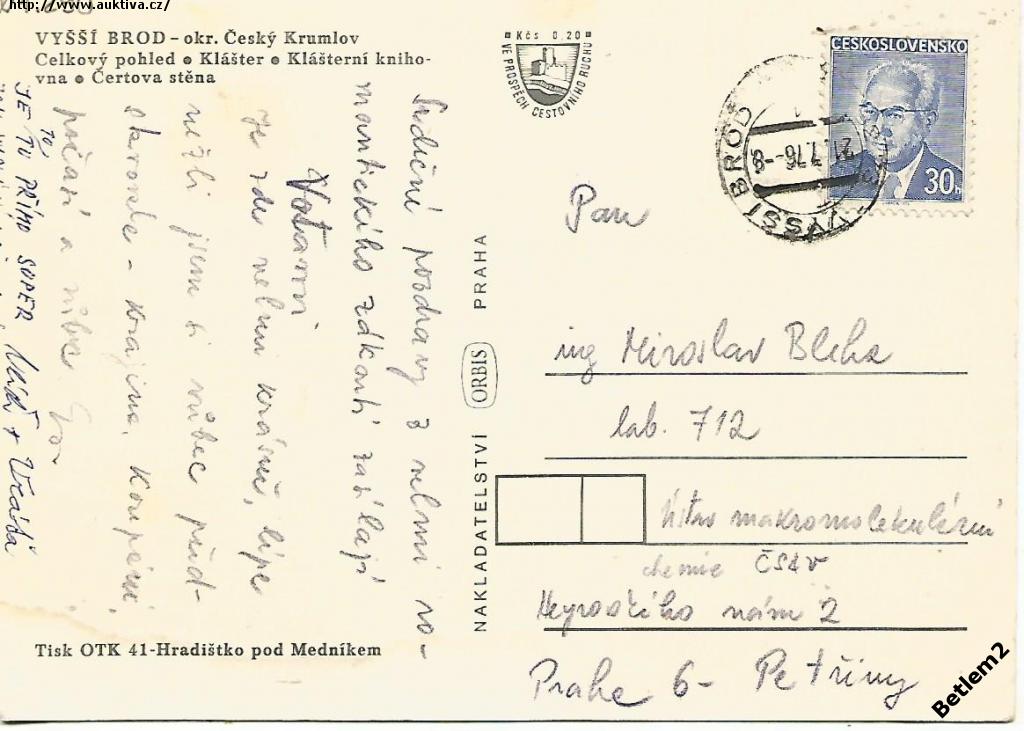 http://www.auktiva.cz/
VYŠŠÍ BROD – okr. Český Krumlov
Celkový pohled • Klášter • Klášterní kniho-
vna • Čertova stěna
Kčs 0,20
VE PROSPĚCH CESTOVNÍHO RUCHU
ČESKOSLOVENSKO
30h
VYŠŠÍ BROD
21.7.76-8
Srdečné pozdravy z velmi ro-
mantického zákoutí zasílají
Votavovi
Je zde velmi krásně, lépe
nežli jsem si vůbec před-
stavovala - krajina, koupání,
počasí a vůbec
TO,
JE TU PŘÍMO SUPER
NAKLADATELSTVÍ ORBIS PRAHA
Pan
ing Miroslav Bleha
lab. 712
Ústav makromolekulární
chemie ČSAV
Heyrovského nám 2
Praha 6- Petřiny
Tisk OTK 41-Hradištko pod Medníkem
Betlem2